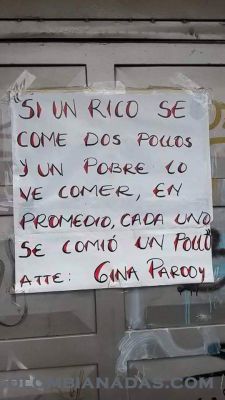 "SI UN RICO SE
COME DOS POLLOS
Y UN POBRE LO
VE COMER, EN
PROMEDIO, CADA UNO
SE COMIÓ UN POLLO"
ATTE: GINA PARODY
COLOMBIANADAS.COM